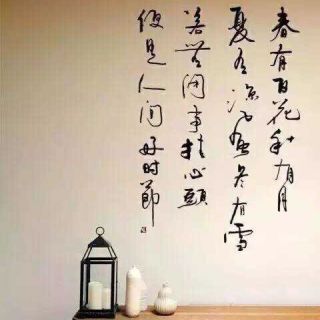 春有百花秋有月
夏有凉风冬有雪
若无闲事挂心頭
便是人间好时節